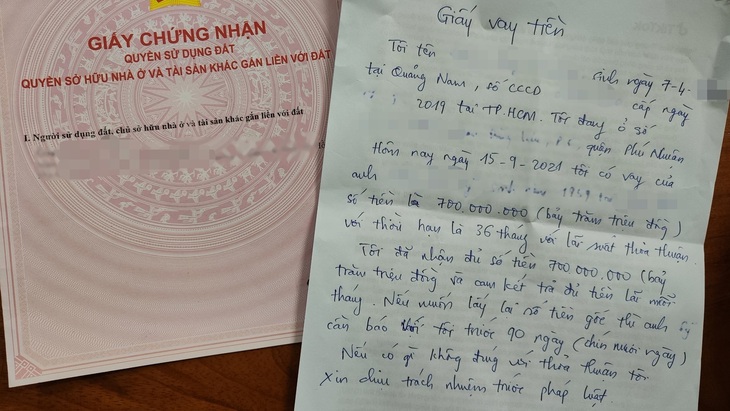 GIẤY CHỨNG NHẬN
QUYỀN SỬ DỤNG ĐẤT
QUYỀN SỞ HỮU NHÀ Ở VÀ TÀI SẢN KHÁC GẮN LIỀN VỚI ĐẤT
I. Người sử dụng đất, chủ sở hữu nhà ở và tài sản khác gắn liền với đất
Giấy vay tiền
Tôi tên sinh ngày 7-4-
tại Quảng Nam, số CCCD cấp ngày
2019 tại TP.HCM. Tôi đang ở số
quận Phú Nhuận
Hôm nay ngày 15-9-2021 tôi có vay của
anh
số tiền là 700.000.000 (bảy trăm triệu đồng)
với thời hạn là 36 tháng với lãi suất thỏa thuận.
Tôi đã nhận đủ số tiền 700.000.000 (bảy
trăm triệu đồng) và cam kết trả đủ tiền lãi mỗi
tháng. Nếu muốn lấy lại số tiền gốc thì anh
cần báo với tôi trước 90 ngày (chín mươi ngày)
Nếu có gì không đúng với thỏa thuận tôi
xin chịu trách nhiệm trước pháp luật.